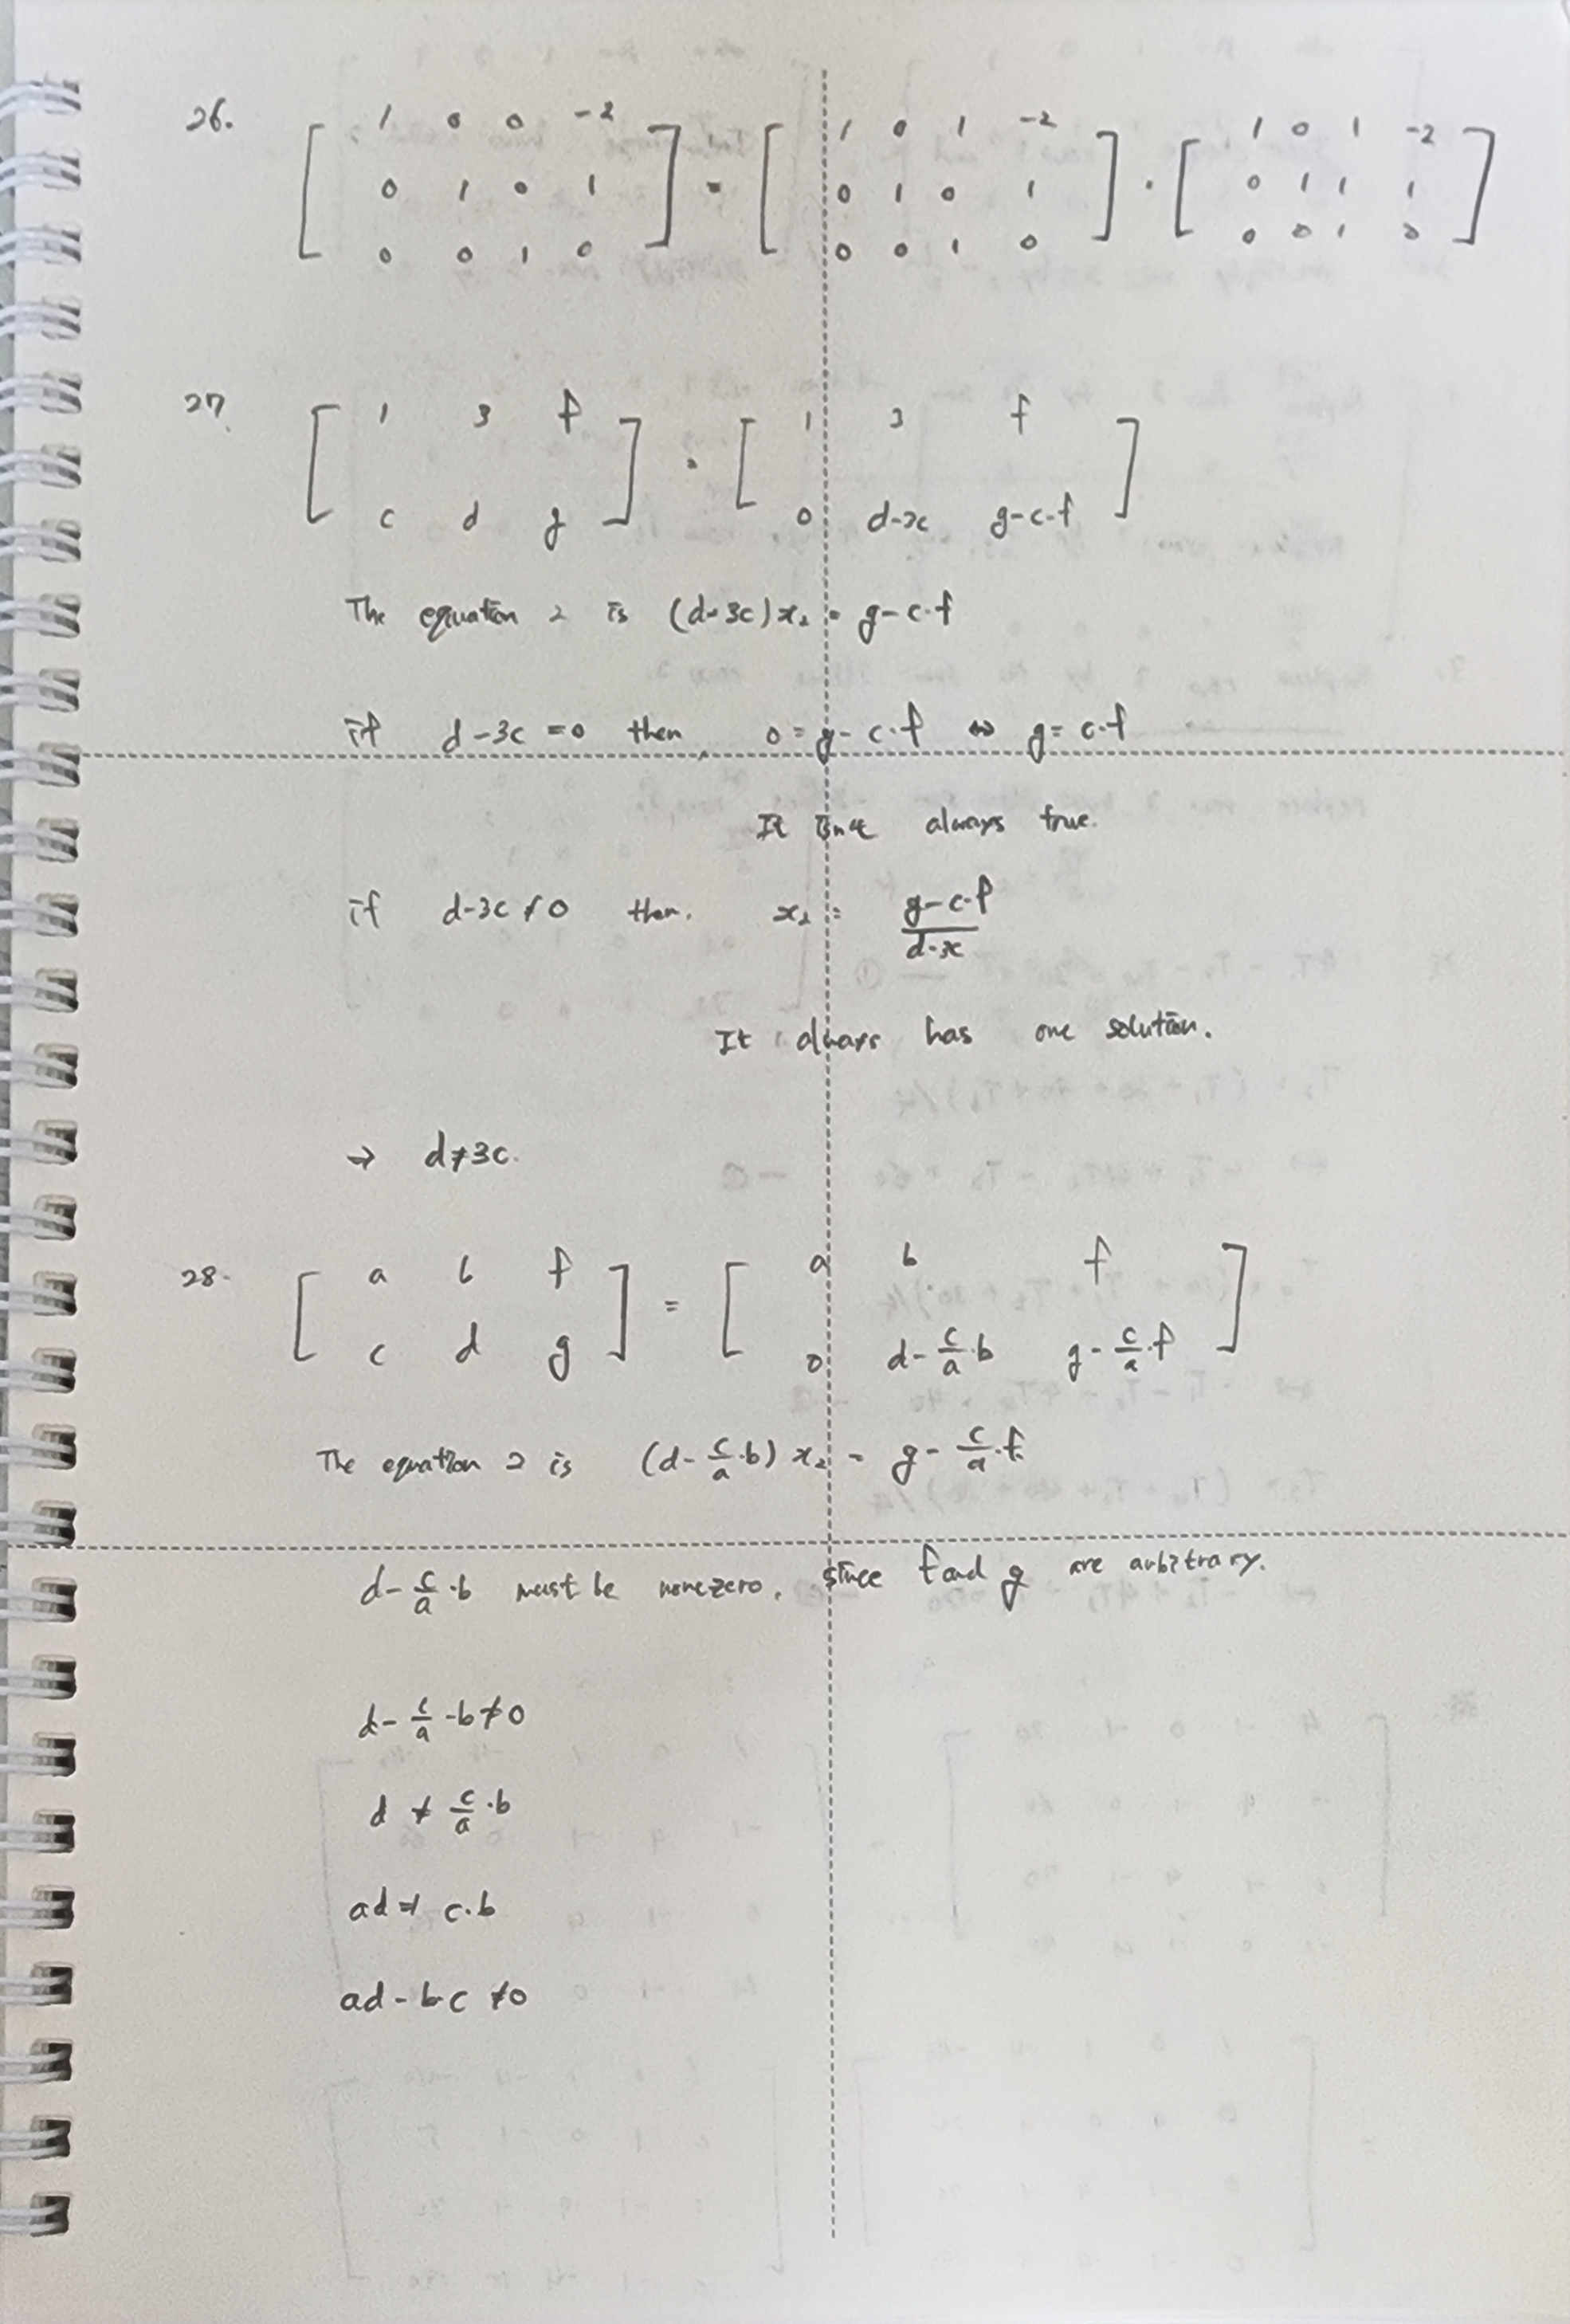 26. [ 1 0 0 -2 ] = [ 1 0 1 -2 ] . [ 1 0 1 -2 ]
0 1 0 1 0 1 0 1 0 1 1 1
0 0 1 0 0 0 1 0 0 0 1 0
27. [ 1 3 f ] . [ 1 3 f ]
c d g 0 d-3c g-c·f
The equation 2 is (d-3c)x₂ = g-c·f
if d-3c=0 then, 0=g-c·f ⇔ g=c·f
It isn't always true.
if d-3c≠0 then. x₂ = g-c·f / d-3c
It always has one solution.
→ d≠3c.
28. [ a b f ] = [ a b f ]
c d g 0 d-c/a·b g-c/a·f
The equation 2 is (d-c/a·b) x₂ = g-c/a·f
d-c/a·b must be nonezero, since f and g are arbitrary.
d-c/a·b≠0
d≠c/a·b
ad≠c·b
ad-b·c≠0